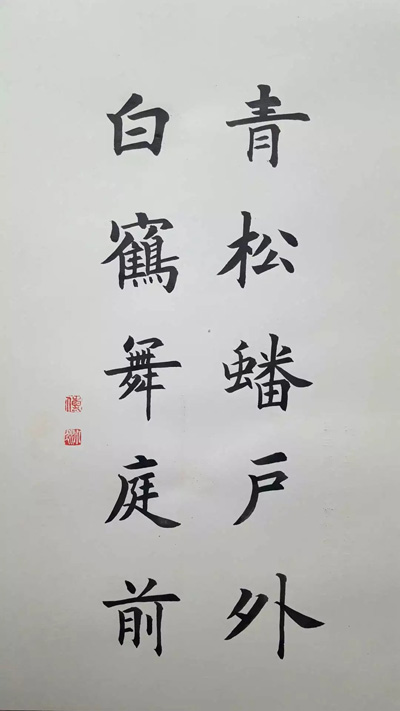 青松蟠戶外
白鶴舞庭前